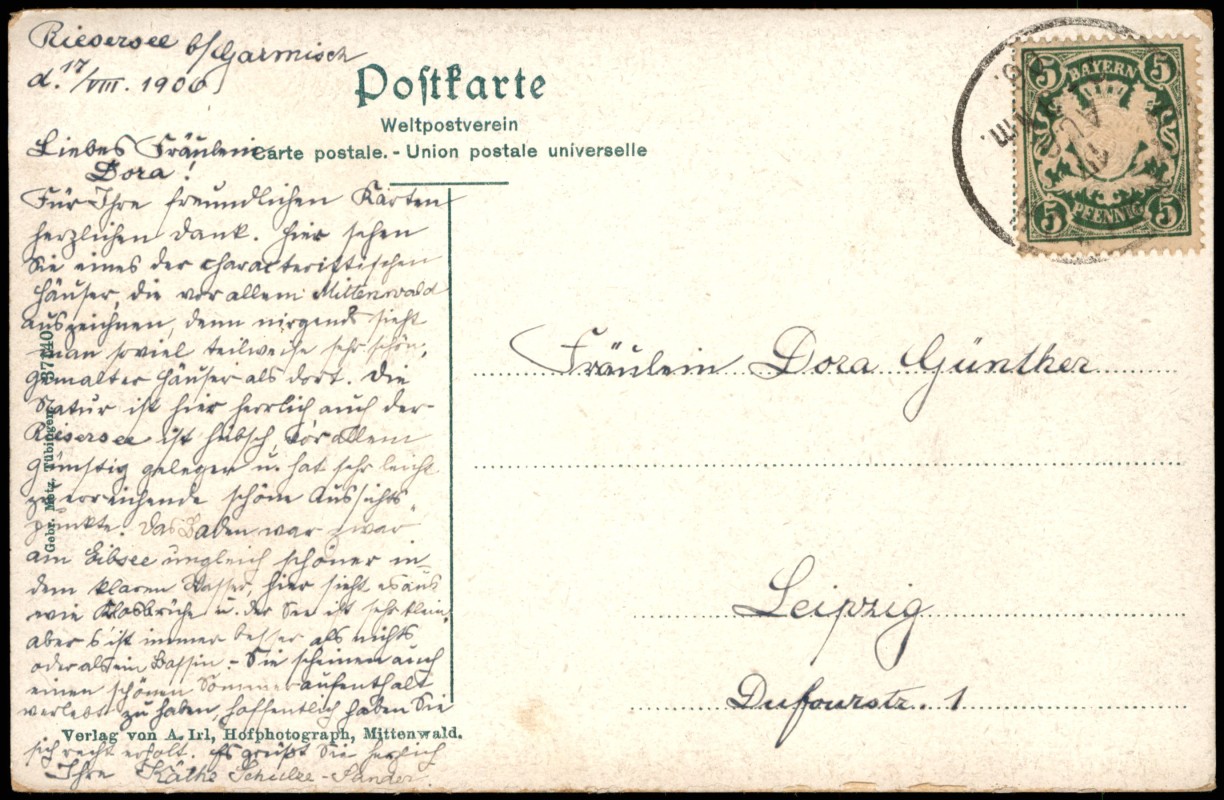 Riesersee b/Garmisch
d. 17/VIII. 1906
Postkarte
Weltpostverein
Carte postale. - Union postale universelle
BAYERN
5 5
5 PFENNIG 5
Liebes Fräulein
Dora!
Für Ihre freundlichen Karten
herzlichen Dank. Hier sehen
Sie eines der characteristischen
Häuser, die vor allem Mittenwald
auszeichnen, denn nirgends sieht
man soviel teilweise sehr schön,
gemalter Häuser als dort. Die
Natur ist hier herrlich auch der
Riesersee ist hübsch, vor allem
günstig gelegen u. hat sehr leicht
zu erreichende schöne Aussichts-
punkte. Das Baden war zwar
am Eibsee ungleich schöner in
dem klaren Wasser, hier sieht es aus
wie u. der See ist sehr klein,
aber s ist immer besser als nichts
oder als ein Bassin - Sie scheinen auch
einen schönen Sommeraufenthalt
verlebt zu haben, hoffentlich haben Sie
sich recht erholt. Es grüßt Sie herzlich
Ihre Käthe Schulze-
Fräulein Dora Günther
Leipzig
Dufourstr. 1
Gebr. Metz, Tübingen
Verlag von A. Irl, Hofphotograph, Mittenwald.